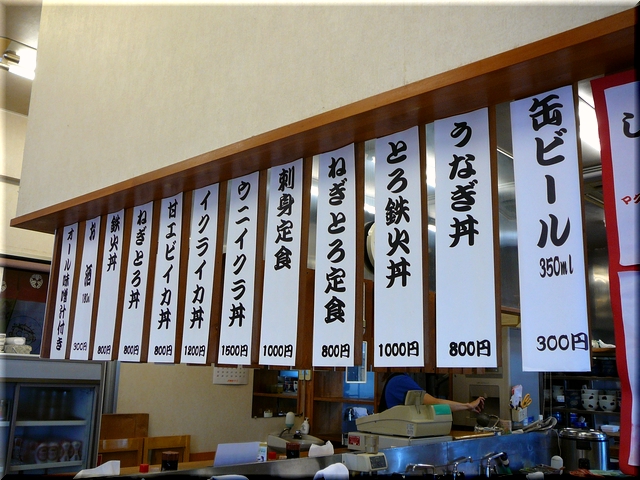 し
マグ
缶ビール
350ml
300円
うなぎ丼
800円
とろ鉄火丼
1000円
ねぎとろ定食
800円
刺身定食
1000円
ウニイクラ丼
1500円
イクライカ丼
1200円
甘エビイカ丼
800円
ねぎとろ丼
800円
鉄火丼
800円
お酒
300円
オール味噌汁付き